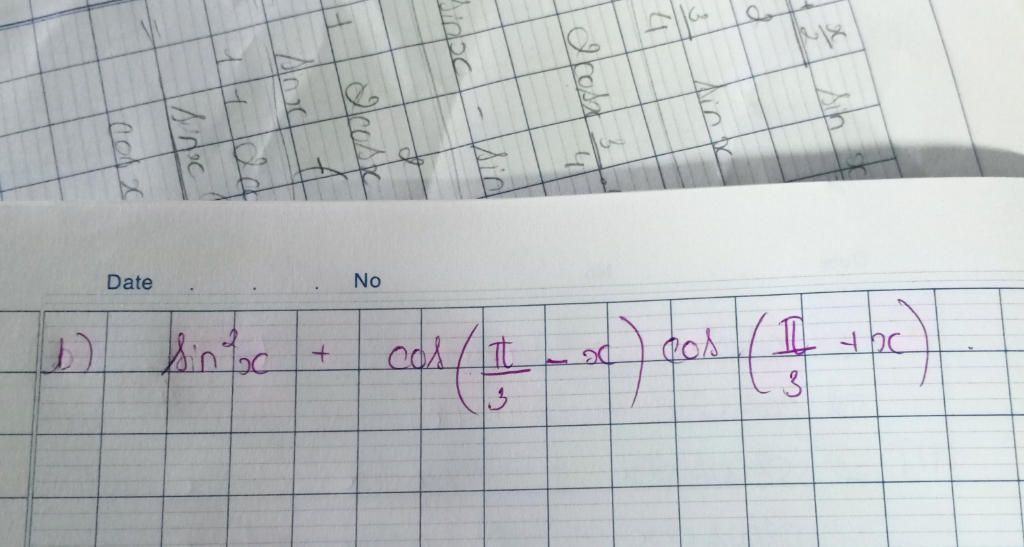 x/2 sin x
2
3/4 sin x
2cosx 3/4
sinx - sin
+ 2cosx
sinx
1 + 2
= sinx
cos x
Date . . . No
b) sin²x + cos(π/3 - x) cos(π/3 + x).